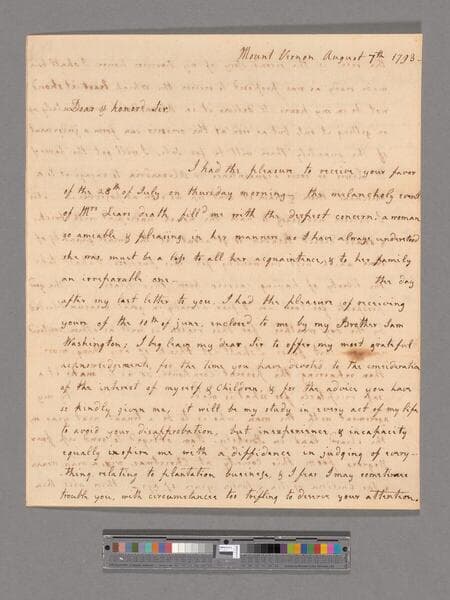 Mount Vernon August 7th 1793-
Dear & honord Sir
I had the pleasure to receive your favor
of the 28th of July on thursday morning- the melancholy event
of Mrs Lears death, fill'd me with the deepest concern, a woman
so amiable & pleasing in her manners, as I have always understood
she was, must be a loss to all her acquaintence, & to her family
an irreparable one- the day
after my last letter to you, I had the pleasure of receiving
yours of the 10th of june, inclosed to me by my Brother Sam
Washington; I beg leave my dear Sir to offer, my most grateful
acknowledgements, for the time you have devoted to the consideration
of the interest of myself & Children, & for the advice you have
so kindly given me, it will be my study in every act of my life
to avoid your disapprobation, but inexperience, & incapacity
equally inspire me with a diffidence in judging of every-
thing relating to plantation business, & I fear I may sometimes
trouble you, with circumstances too trifling to deserve your attention,